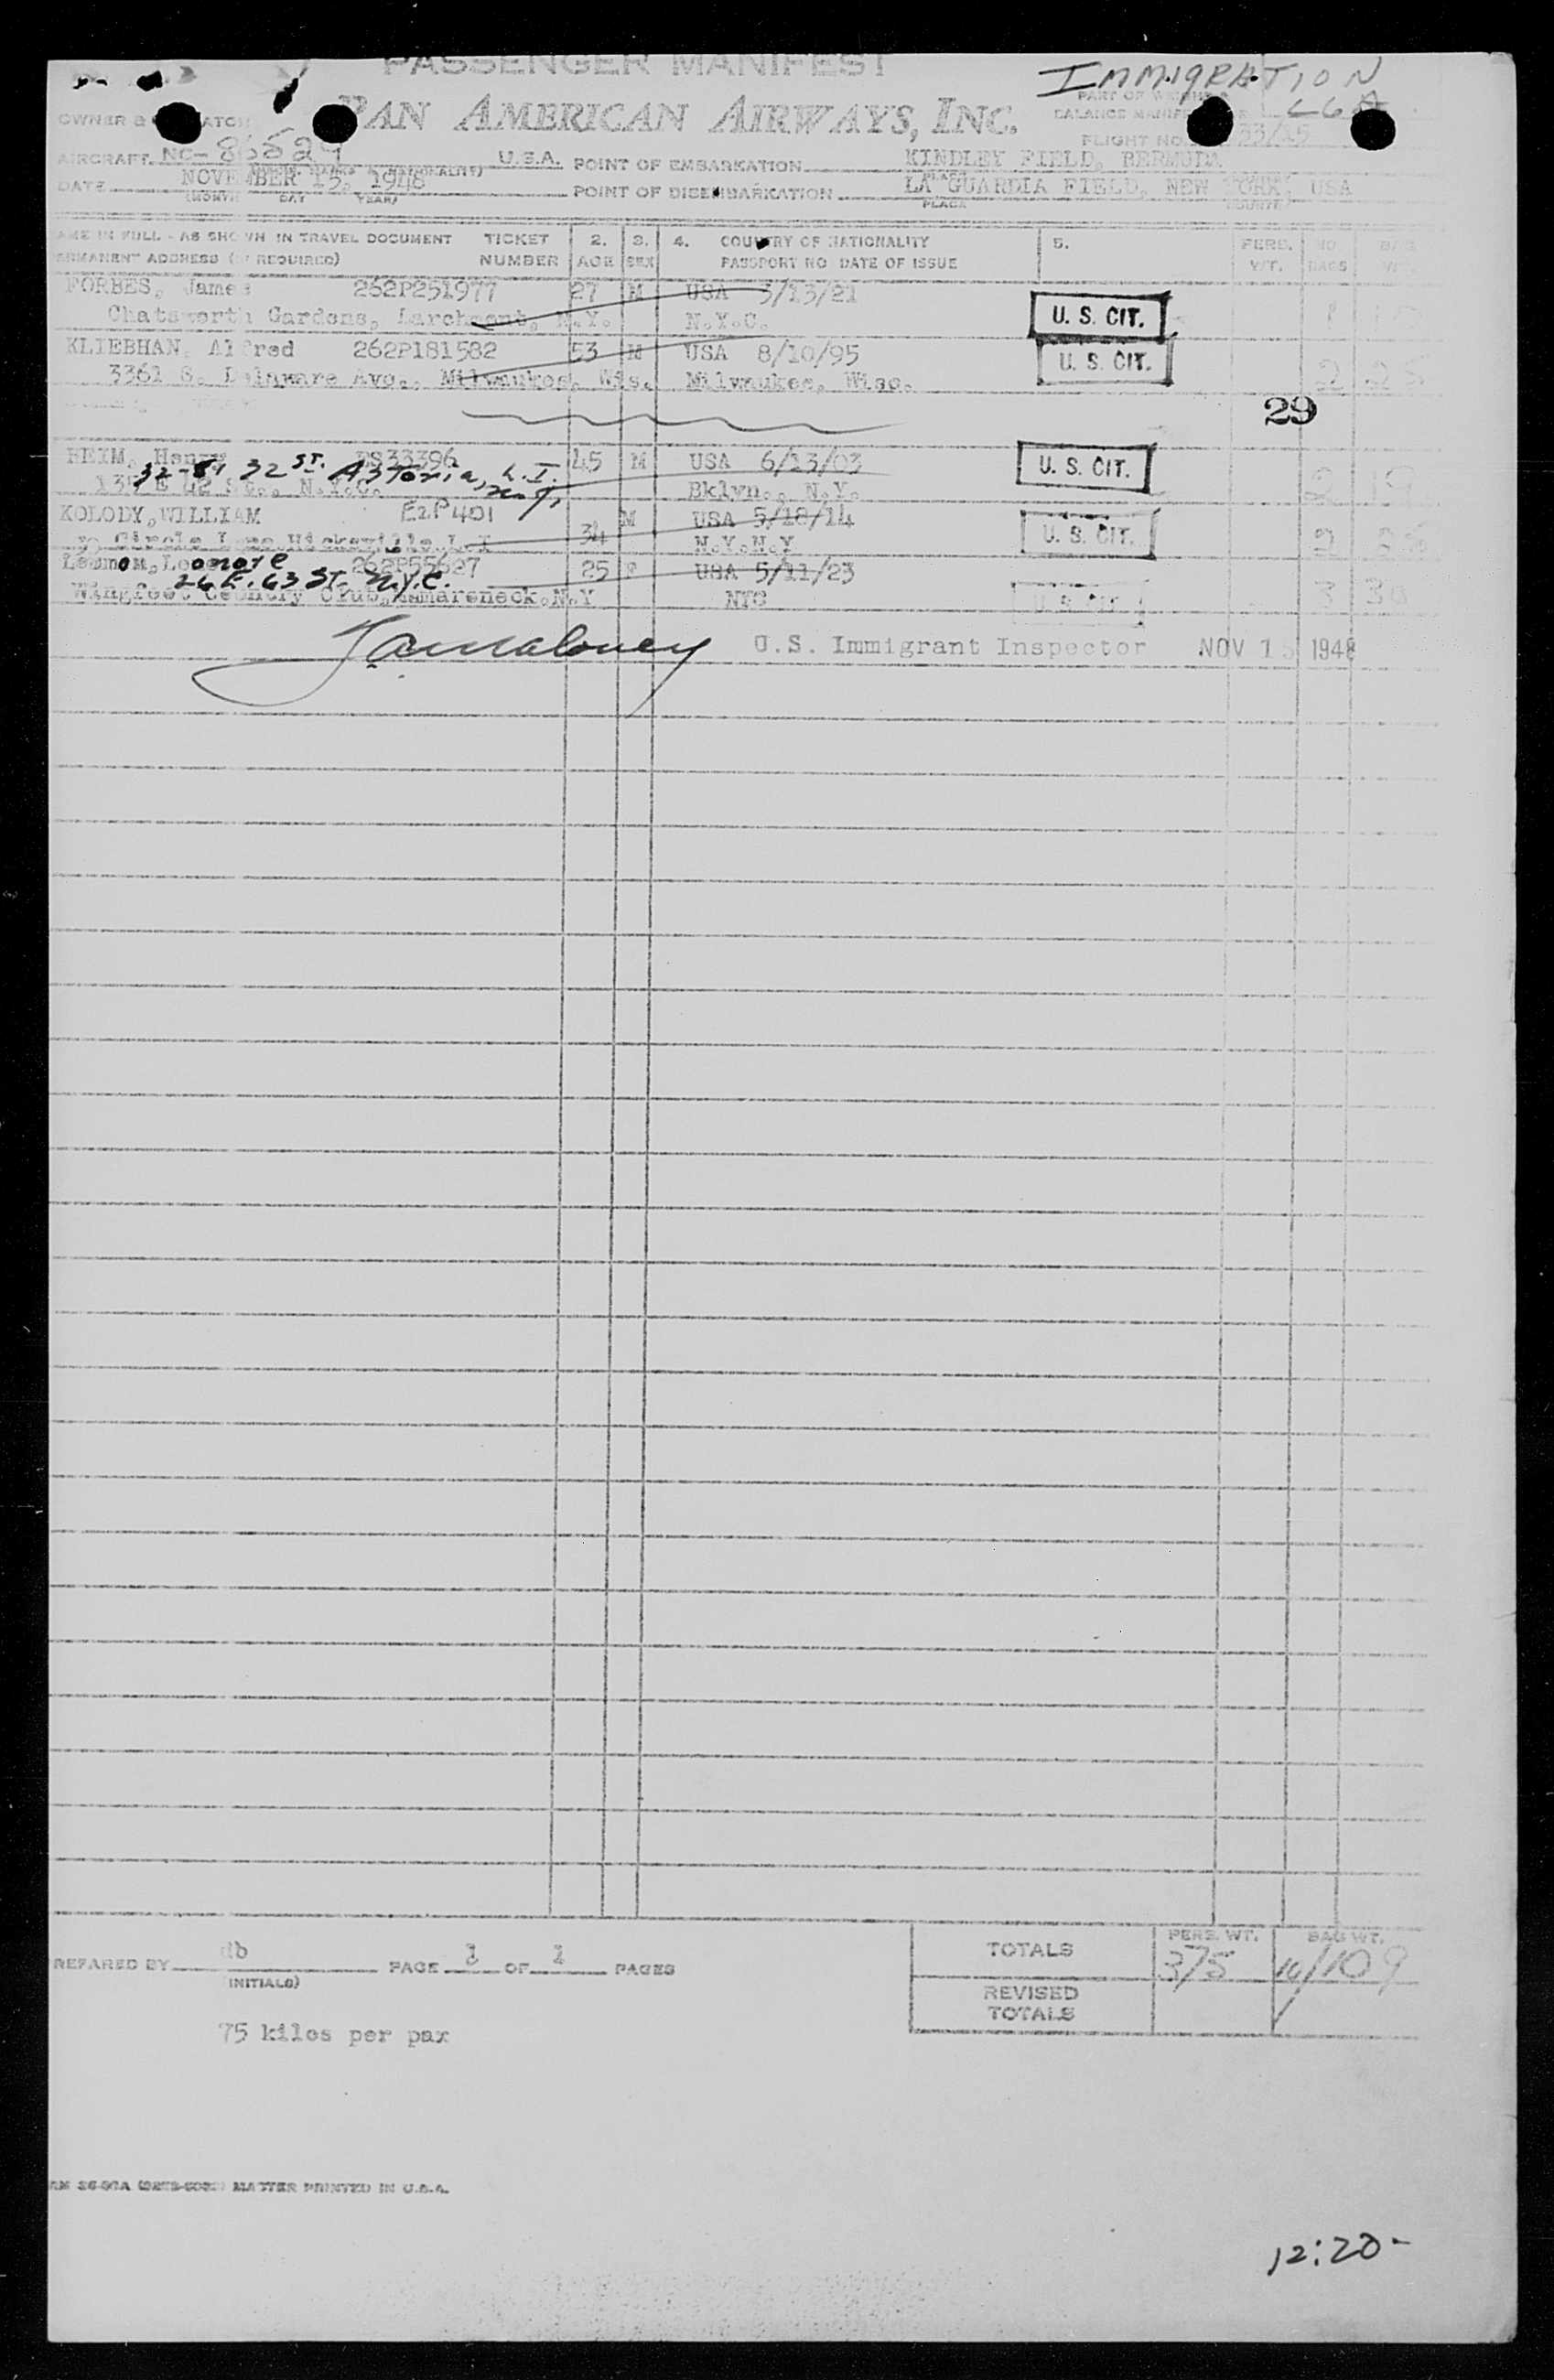 PASSENGER MANIFEST
IMMIGRATION
PAN AMERICAN AIRWAYS, INC.
PART OF
LGA
OWNER
BALANCE MANIFEST
FLIGHT NO.
AIRCRAFT NC- U.S.A. POINT OF EMBARKATION KINDLEY FIELD, BERMUDA
DATE NOVEMBER 15, 1948 POINT OF DISEMBARKATION LA GUARDIA FIELD, NEW YORK, USA
(MONTH DAY YEAR) PLACE
NAME IN FULL - AS SHOWN IN TRAVEL DOCUMENT TICKET 2. 3. 4. COUNTRY OF NATIONALITY 5. PERS. NO.
PERMANENT ADDRESS (IF REQUIRED) NUMBER AGE SEX PASSPORT NO DATE OF ISSUE WT. BAGS
FORBES, James 262P251977 27 M USA 3/13/21
Chatsworth Gardens, Larchmont, N.Y. N.Y.C. U. S. CIT.
KLIEBHAN, Alfred 262P181582 53 M USA 8/10/95 U. S. CIT.
3361 S. Delaware Ave., Milwaukee, Wis. Milwaukee, Wisc. 2
29
HEIM, Henry DS33396 45 M USA 6/13/03 U. S. CIT. 2
32 ST. Astoria, L.I. N.Y.
135 E 42 St., N.Y.C. Bklyn., N.Y.
KOLODY, WILLIAM EZP401 34 M USA 5/18/14 U. S. CIT. 2
Circle Lane Hicksville L.I N.Y.N.Y
Leonore 262P55627 25 F USA 5/11/23
26 E. 63 St. N.Y.C.
Wingfoot Country Club, Mamaroneck, N.Y NYC U S CIT 3 30
J A Maloney U.S. Immigrant Inspector NOV 15 1948
PREPARED BY db PAGE 1 OF 1 PAGES
(INITIALS)
TOTALS PERS. WT. 375 BAG WT. 10/109
REVISED
TOTALS
75 kilos per pax
MATTER PRINTED IN U.S.A.
12:20-